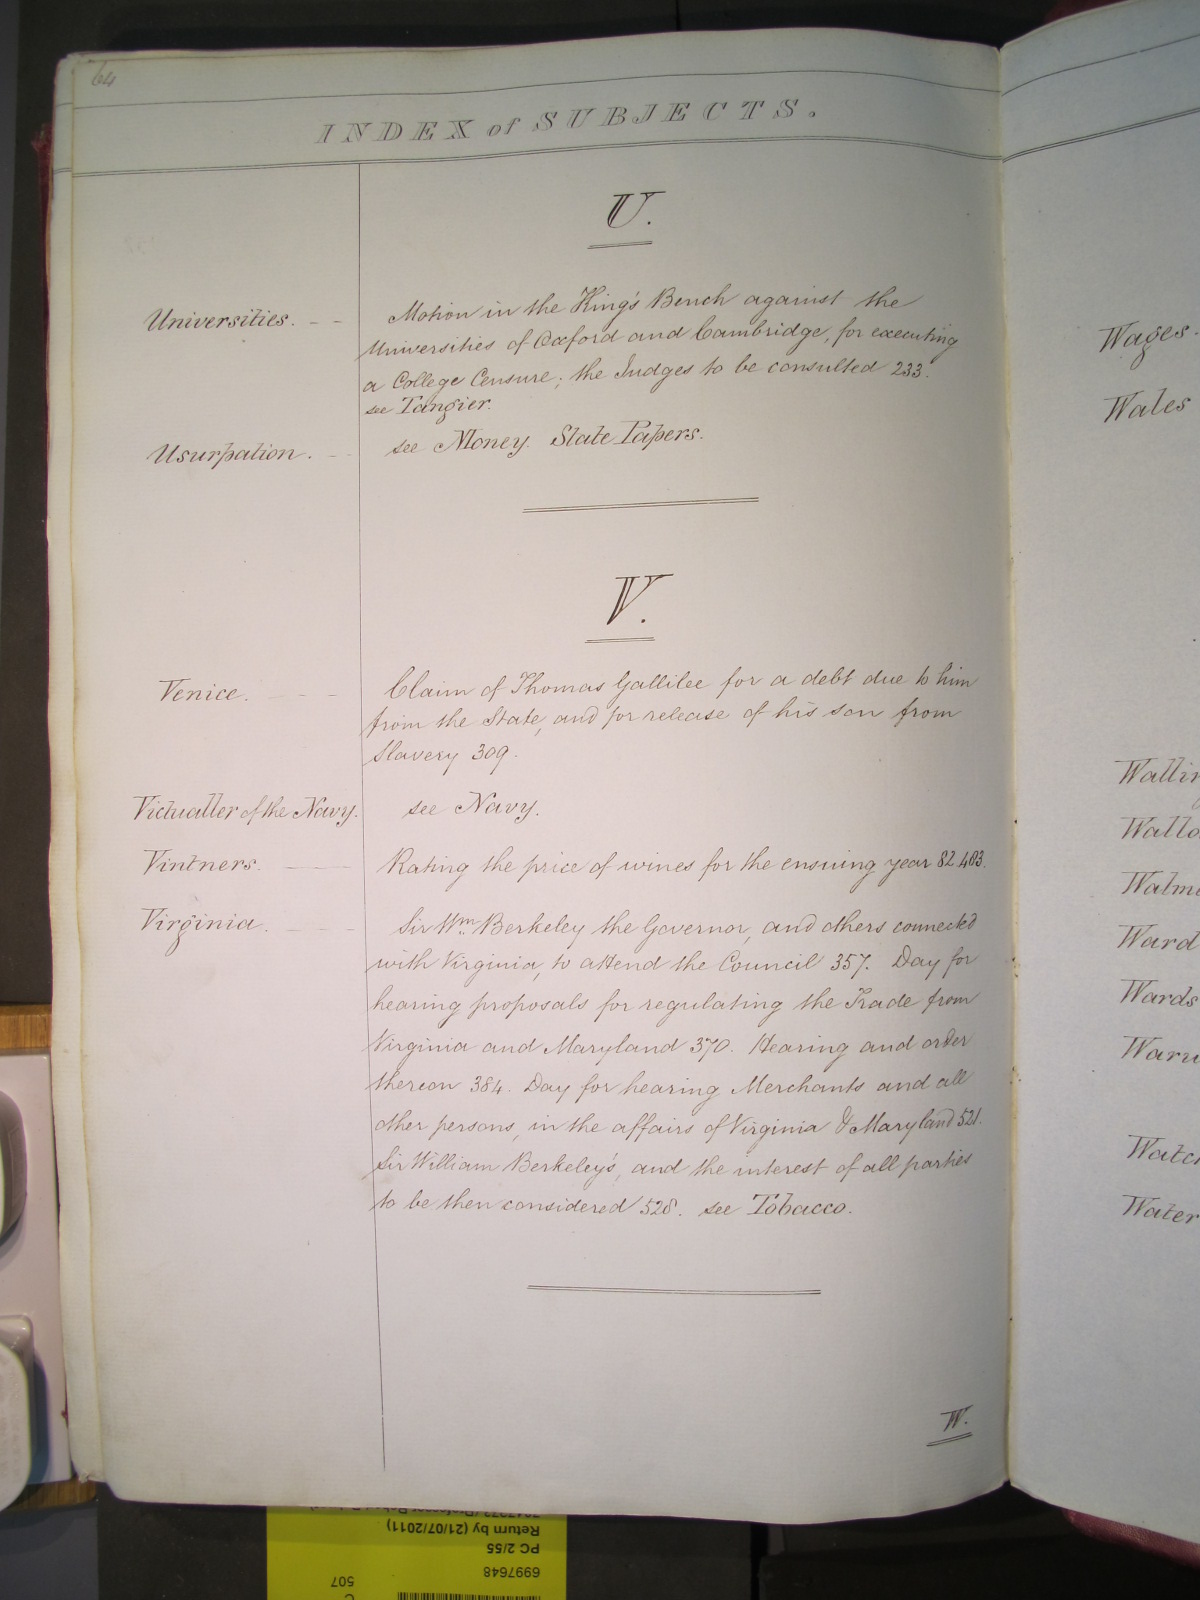 64
INDEX of SUBJECTS.
U.
Universities. - - Motion in the King's Bench against the
Universities of Oxford and Cambridge, for executing
a College Censure; the Judges to be consulted 233.
see Tangier.
Usurpation. - - see Money. State Papers.
V.
Venice. - - - Claim of Thomas Gallilee for a debt due to him
from the State, and for release of his son from
Slavery 309.
Victualler of the Navy. see Navy.
Vintners. - - - Rating the price of wines for the ensuing year 82. 403.
Virginia. - - - Sir Wm. Berkeley the Governor, and others connected
with Virginia, to attend the Council 357. Day for
hearing proposals for regulating the Trade from
Virginia and Maryland 370. Hearing and order
thereon 384. Day for hearing Merchants and all
other persons, in the affairs of Virginia & Maryland 521.
Sir William Berkeley's, and the interest of all parties
to be then considered 528. see Tobacco.
W.
Wages.
Wales
Ward
Wards
Water
Return by (21/07/2011)
PC 2/55
6997648
507